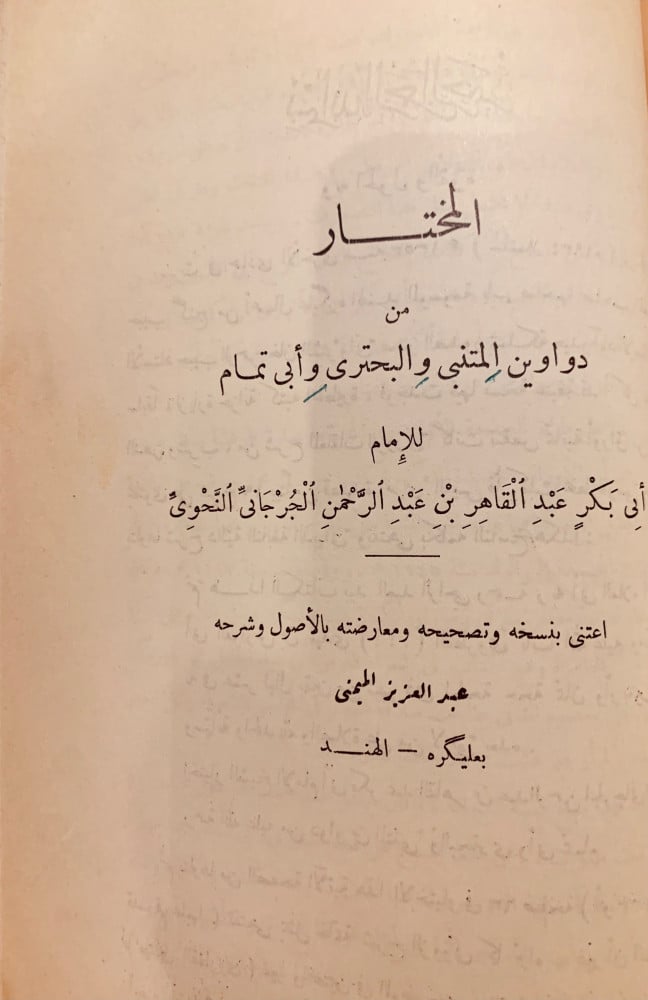 المختار
من
دواوين المتنبى والبحترى وأبى تمام
للإمام
أَبِى بَكْرٍ عَبْدِ الْقَاهِرِ بْنِ عَبْدِ الرَّحْمٰنِ الْجُرْجَانىِّ النَّحْوِىِّ
اعتنى بنسخه وتصحيحه ومعارضته بالأصول وشرحه
عبد العزيز الميمنى
بعليگره — الهند